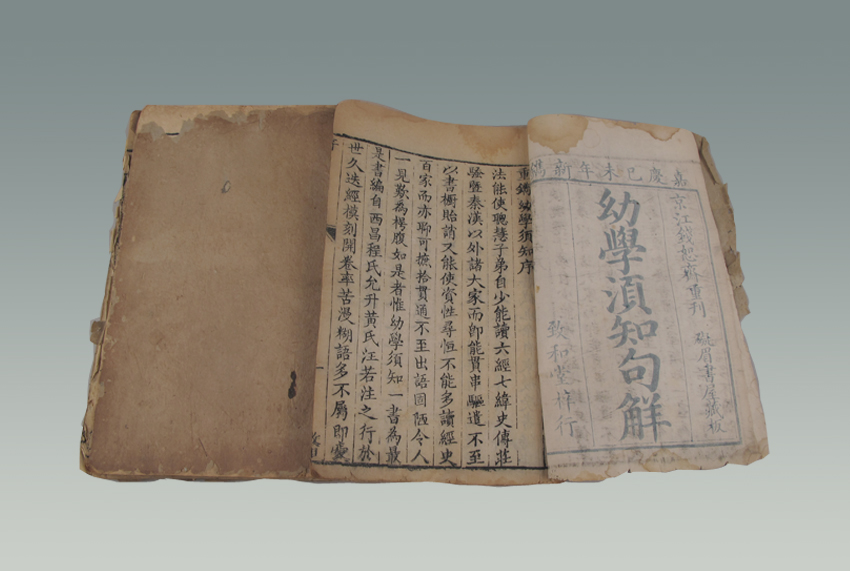 嘉慶巳未年新鐫
京江錢恕齋重刊
硯眉書屋藏板
幼學須知句解
致和堂梓行
重鐫幼學須知序
法能使聰慧子弟自少能讀六經七緯史傳莊
騷暨秦漢以外諸大家而卽能貫串驅遣不至
以書櫥貽誚又能使資性尋恒不能多讀經史
百家而亦聊可摭拾貫通不至出語固陋令人
一見歎為枵腹如是者惟幼學須知一書為最
是書編自西昌程氏允升黃氏江若注之行於
世久迭經模刻開卷率苦漫糊語多不屬即